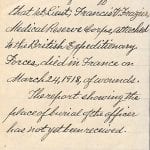 that 1st Lieut. Francis H. Frazier,
Medical Reserve Corps, attached
to the British Expeditionary
Forces, died in France on
March 24, 1918, of wounds.
The report showing the
place of burial of the officer
has not yet been received.